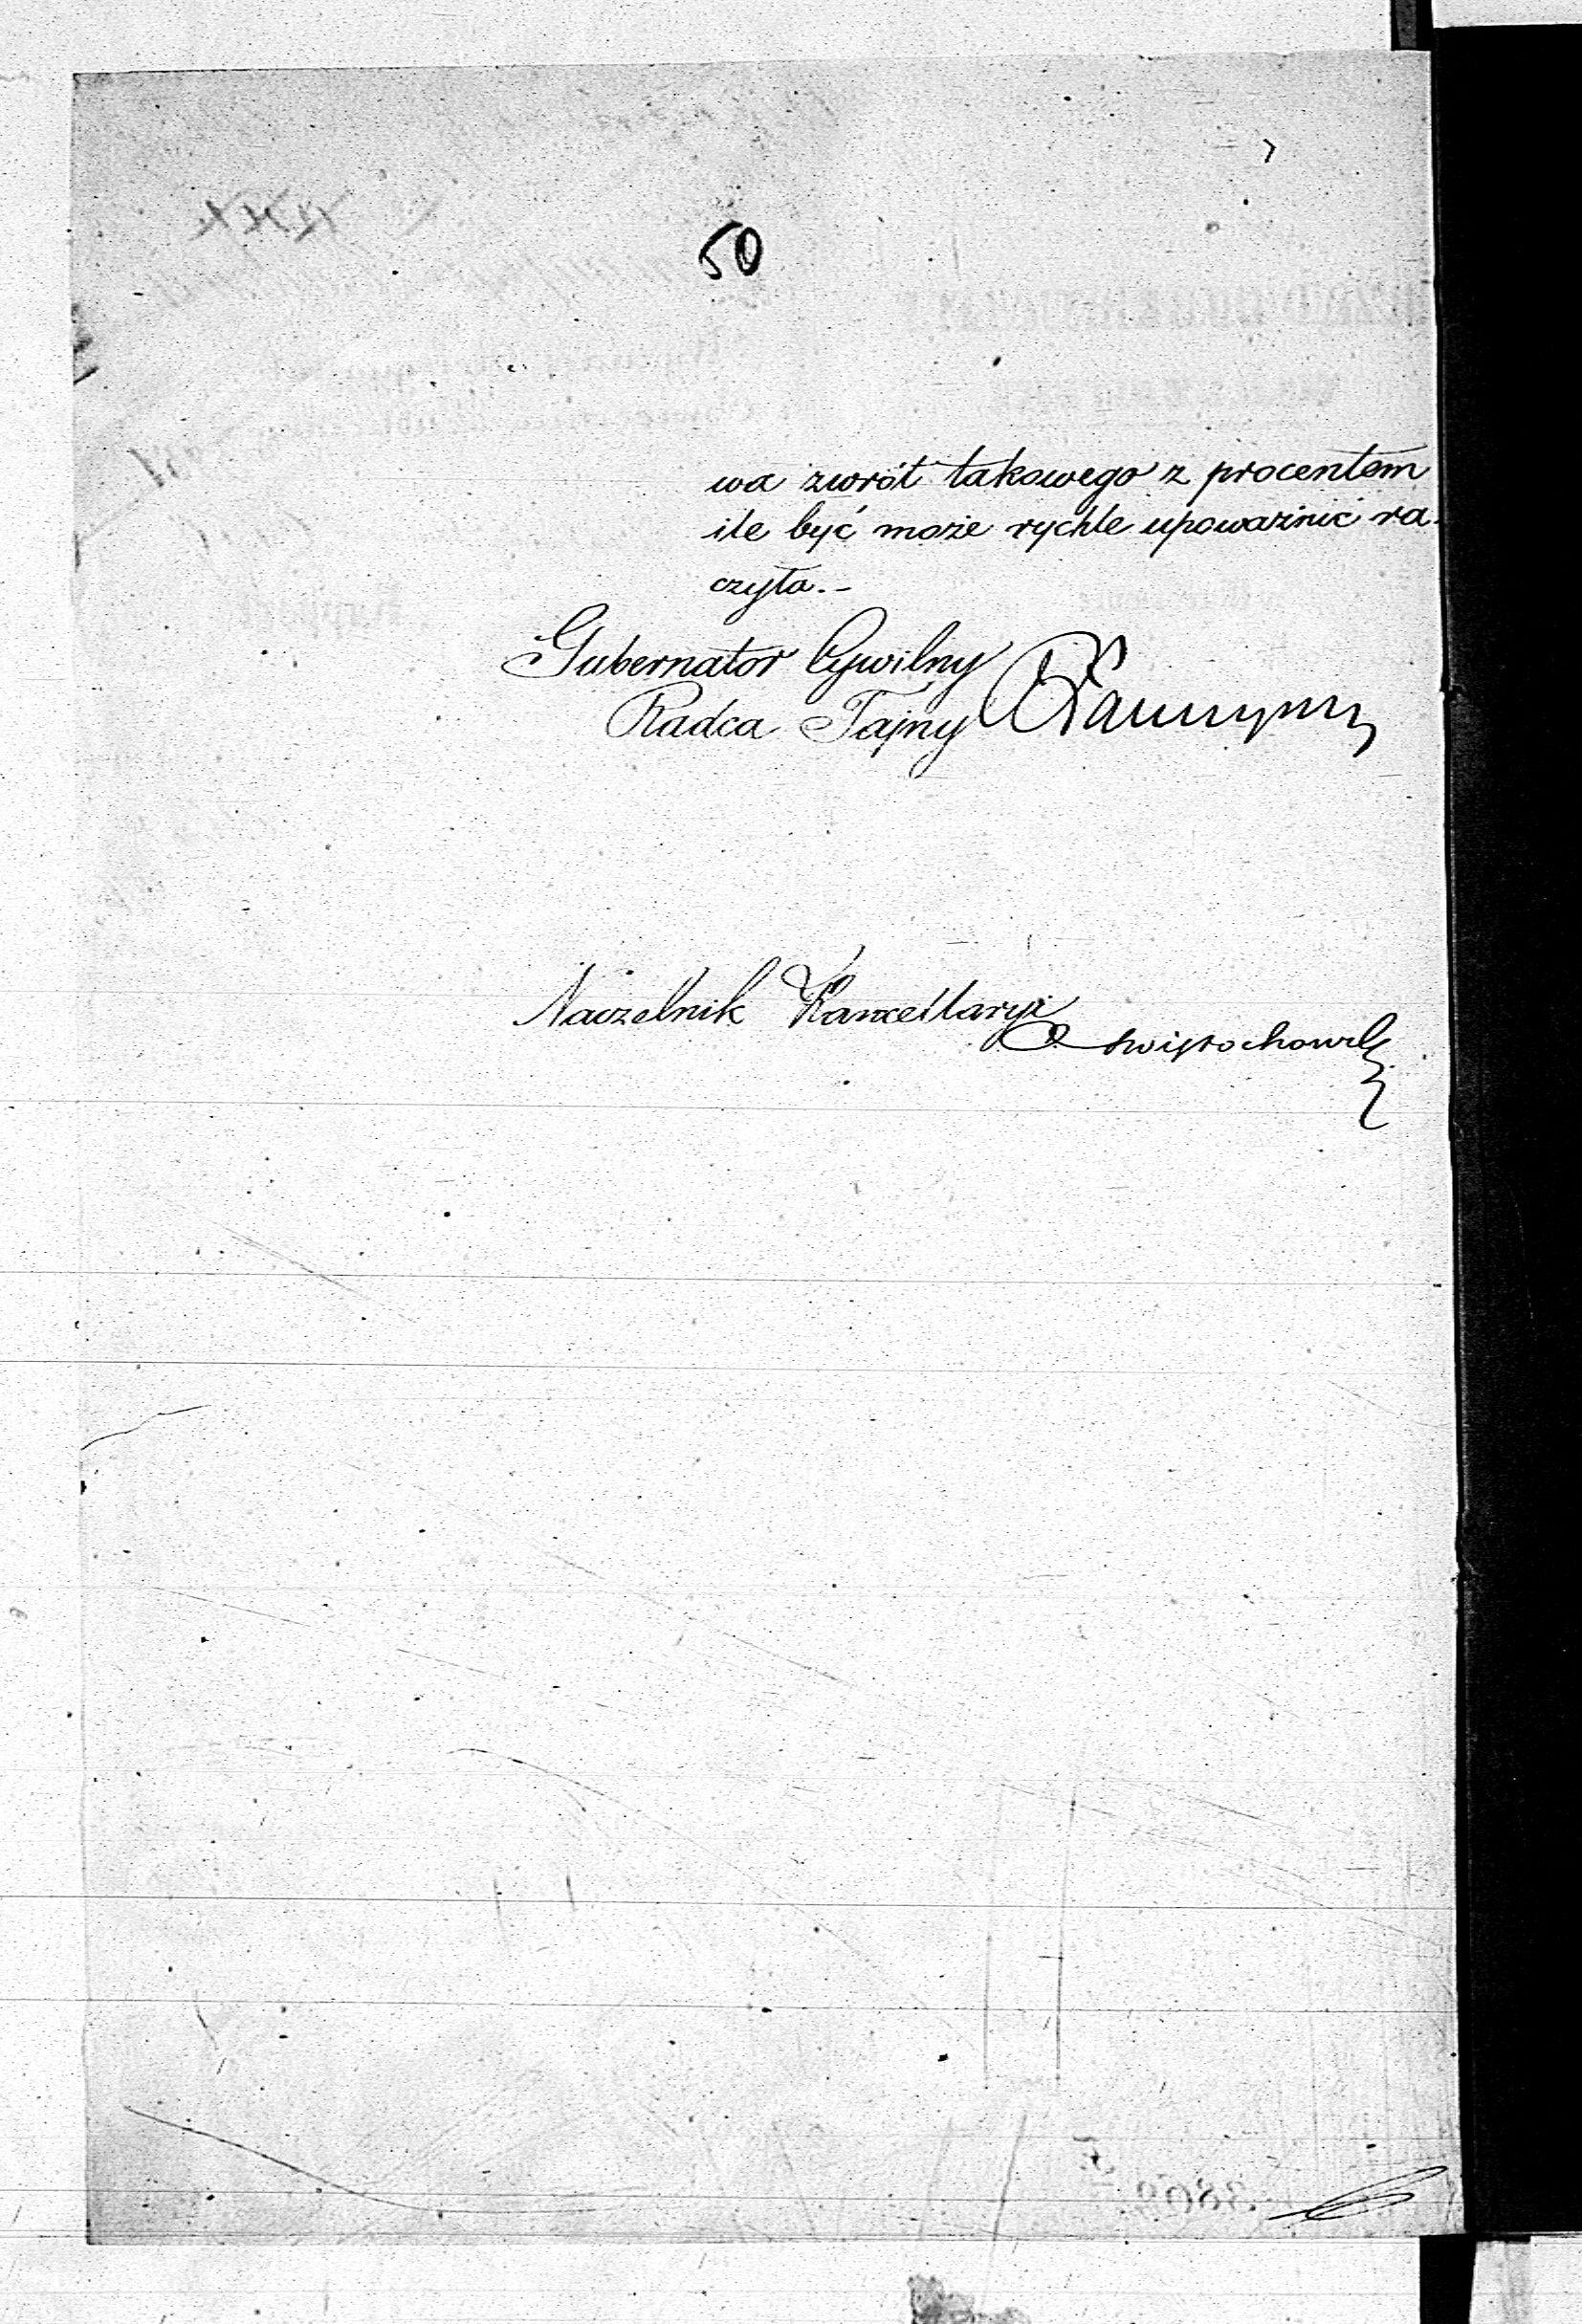 50
wa zwrót takowego z procentem
ile być może rychle upoważnić ra-
czyła.-
Gubernator Cywilny
Radca Tajny
Naczelnik Kancellaryi